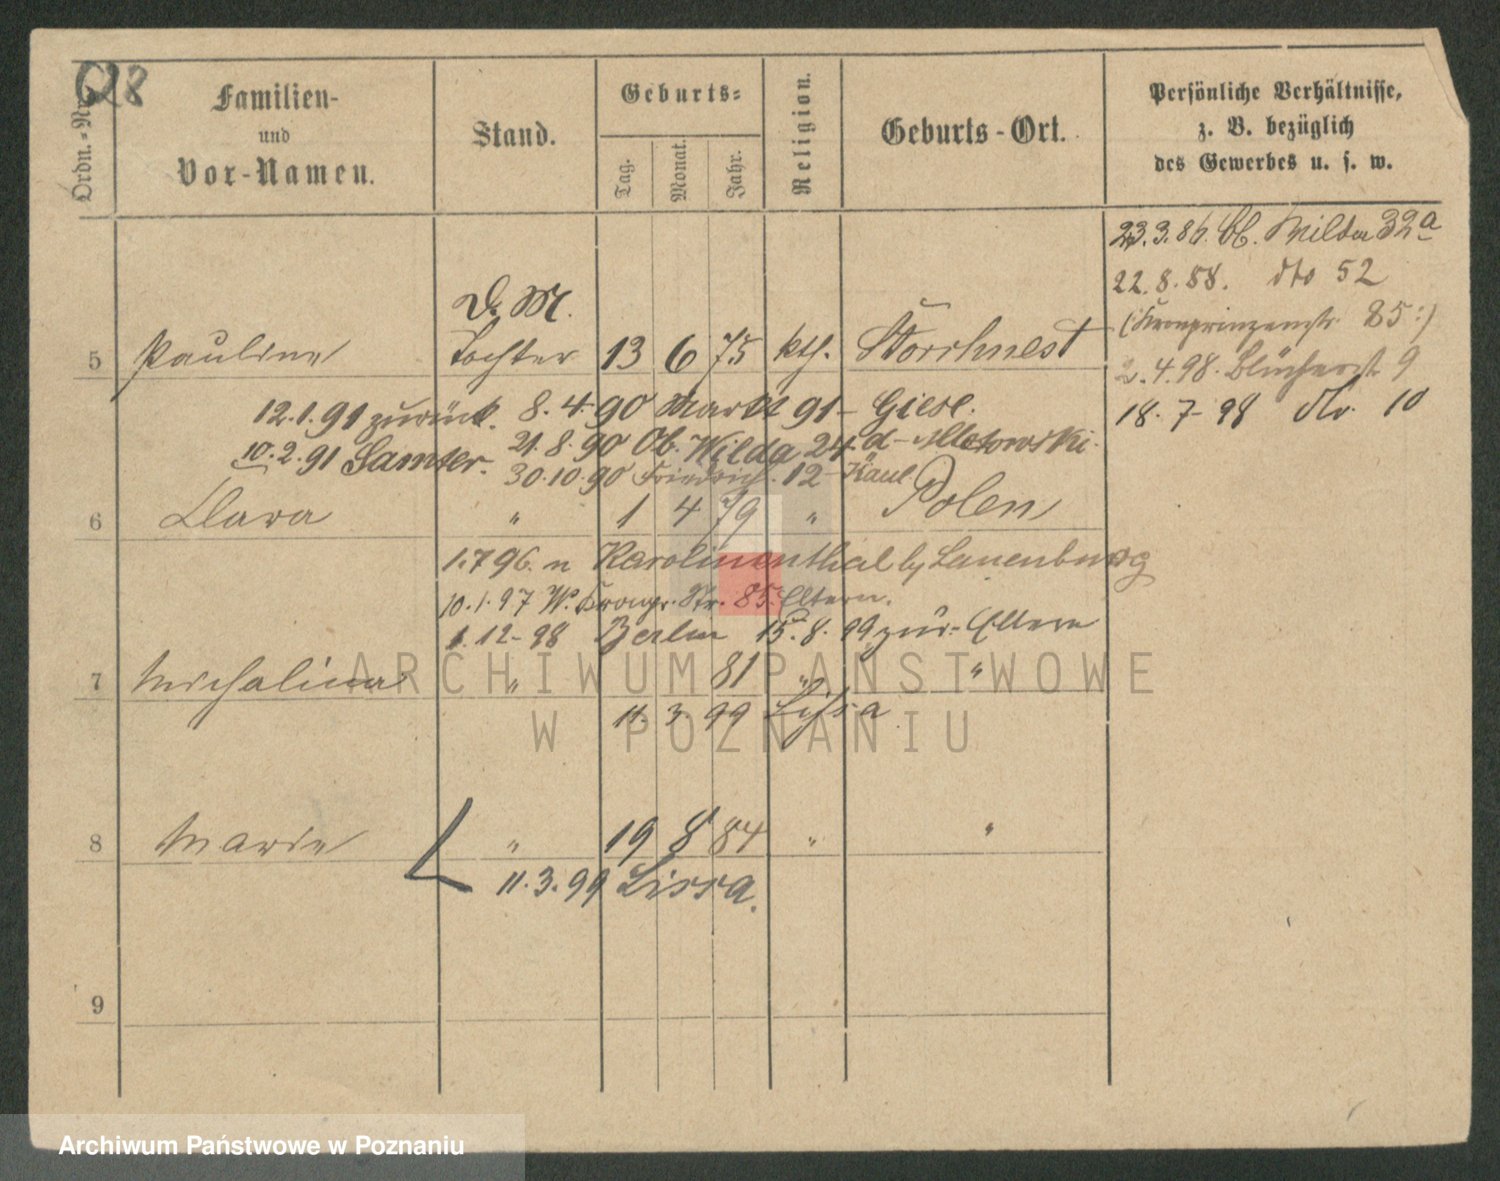 628
Ordn.-Nr.
Familien-
und
Vor-Namen.
Stand.
Geburts-
Tag.
Monat.
Jahr.
Religion.
Geburts-Ort.
Persönliche Verhältnisse,
z. B. bezüglich
des Gewerbes u. s. w.
23.3.86. Ob. Wilda 32a
22.8.88. dto 52
(Kronprinzenstr. 85:)
2.4.98. Blücherstr. 9
18.7-98 dto. 10
D. M.
5 Pauline Tochter 13 6 75 kth. Storchnest
12.1.91 zurück. 8.4.90 Markt 91- Giese.
10.2.91 Samter. 21.8.90 Ob. Wilda 24.d-
30.10.90 Friedrich. 12-
6 Clara " 1 4 79 " Polen
1.7 96. n Karolinenthal b/ Lauenburg
10.1.97 W. Kronpr. Str. 85. Eltern.
1.12-98 Berlin 15.8.99 zur- Eltern
7 Michalina " 81 " "
11.3.99 Lissa
8 Marie " 19 8 84 " "
11.3.99 Lissa.
9
ARCHIWUM PAŃSTWOWE
W POZNANIU
Archiwum Państwowe w Poznaniu